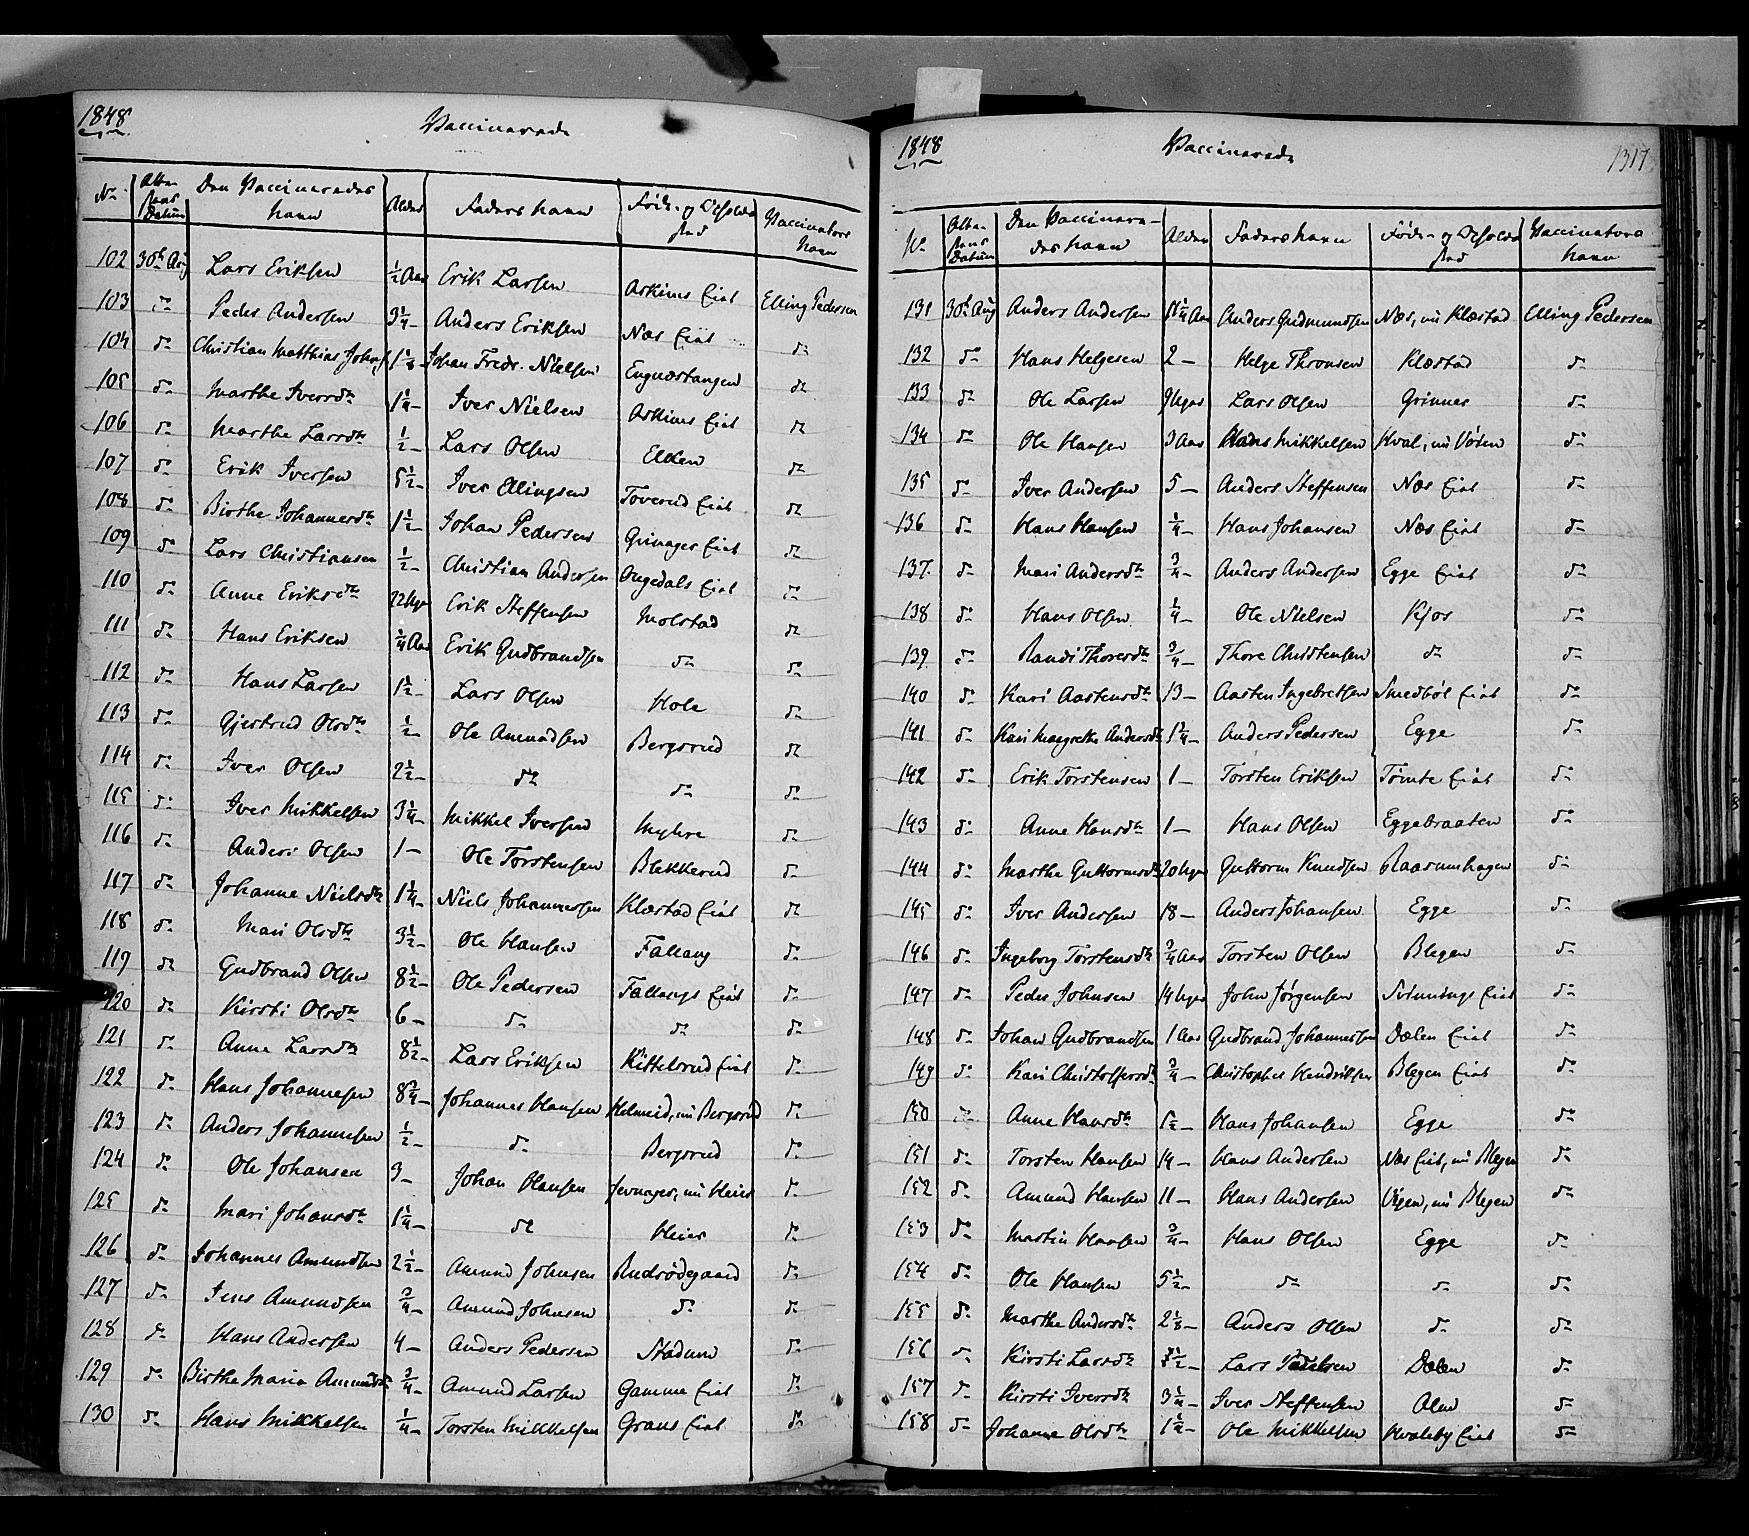 1848
Vaccinerede
No Atte- stens Datum Den Vaccineredes Navn Alder Faders Navn Føde- og Opholds sted Vaccinators Navn
102 30te Aug Lars Eriksen ½ Aar Erik Larsen Askims Eiet Elling Pedersen
103 do Peder Andersen 3¼ - Anders Eriksen Næs Eiet do
104 do Christian Matthias Johans. Johan Fredr. Nielsen Engnæstangen do
105 do Marthe Iversdtr 1¼ - Iver Nielsen Askims Eiet do
106 do Marthe Larsdtr ½ - Lars Olsen Elken do
107 do Erik Iversen 5½ - Iver Ellingsen Toverud Eiet do
108 do Birthe Johannesdtr 1½ - Johan Pedersen Grinager Eiet do
109 do Lars Christiansen ½ - Christian Andersen Ongedals Eiet do
110 do Anne Eriksdtr 22 Uger Erik Steffensen Molstad do
111 do Hans Eriksen ¾ Aar Erik Gudbrandsen do do
112 do Hans Larsen 1½ - Lars Olsen Hole do
113 do Gjertrud Olsdtr ½ - Ole Amundsen Bergsrud do
114 do Iver Olsen 2½ - do do do
115 do Iver Mikkelsen 3¼ - Mikkel Iversen Myhre do
116 do Anders Olsen 1 - Ole Torstensen Blekkerud do
117 do Johanne Nielsdtr 1¼ - Niels Johannesen Klæstad Eiet do
118 do Mari Olsdtr 3½ - Ole Hansen Fallang do
119 do Gudbrand Olsen 8½ - Ole Pedersen Fallangs Eiet do
120 do Kirsti Olsdtr 6 - do do do
121 do Anne Larsdtr 8½ - Lars Eriksen Kittelsrud Eiet do
122 do Hans Johannesen 8¾ - Johannes Hansen nu Bergsrud do
123 do Anders Johannesen ½ - do Bergsrud do
124 do Ole Johansen 3 - Johan Hansen Jevnager, nu Heier do
125 do Mari Johansdtr 1¼ - do Heier do
126 do Johannes Amundsen 2½ - Amund Johnsen Rudsødegaard do
127 do Jens Amundsen ¾ - Amund Johnsen do do
128 do Hans Andersen 4 - Anders Pedersen Stadum do
129 do Birthe Maria Amundsdtr ¾ - Amund Larsen Gamme Eiet do
130 do Hans Mikkelsen ¼ - Torsten Mikkelsen Grans Eiet do
1848
Vaccinerede
1317
No Atte- stens Datum Den Vaccinere- des Navn Alder Faders Navn Føde- og Opholds sted Vaccinators Navn
131 30te Aug Anders Andersen Aar Anders Gudmundsen Næs, nu Klæstad Elling Pedersen
132 do Hans Helgesen 2 - Helge Thronsen Klæstad do
133 do Ole Larsen 9 Uger Lars Olsen Grinner do
134 do Ole Hansen 3 Aar Hans Mikkelsen Hval, nu Vøien do
135 do Iver Andersen 5 - Anders Steffensen Næs Eiet do
136 do Hans Hansen ¼ - Hans Johansen Næs Eiet do
137 do Mari Andersdtr ¾ - Anders Andersen Egge Eiet do
138 do Hans Olsen ¼ - Ole Nielsen Kjos do
139 do Randi Thoresdtr ¾ - Thore Christensen do do
140 do Kari Aastensdtr 13 - Aasten Ingebretsen Smedbøl Eiet do
141 do Kari Margrethe Andersdtr 1¼ - Anders Pedersen Egge do
142 do Erik Torstensen 1 - Torsten Eriksen Tømte Eiet do
143 do Anne Hansdtr 1 - Hans Olsen Eggebraaten do
144 do Marthe Guttormsdtr 20 Uger Guttorm Knudsen Raasumhagen do
145 do Iver Andersen 18 - Anders Johansen Egge do
146 do Ingeborg Torstensdtr ¾ Aar Torsten Olsen Blegen do
147 do Peder Johnsen 14 Uger John Jørgensen Svinnings Eiet do
148 do Johan Gudbrandsen 1 Aar Gudbrand Johannessen Dælen Eiet do
149 do Kari Christoffersdtr ¾ - Christopher Hendriksen Blegen Eiet do
150 do Anne Hansdtr Hans Johansen Egge do
151 do Torsten Hansen 14 - Hans Andersen Næs Eiet, nu Blegen do
152 do Amund Hansen 11 - Hans Andersen Vigen, nu Blegen do
153 do Martin Hansen ¾ - Hans Olsen Egge do
154 do Ole Hansen 5½ - do do do
155 do Marthe Andersdtr Anders Olsen do do
156 do Kirsti Larsdtr Lars Dælen do
157 do Kirsti Iversdtr 3¼ - Iver Steffensen Alm do
158 do Johanne Olsdtr Ole Mikkelsen Hvaleby Eiet do